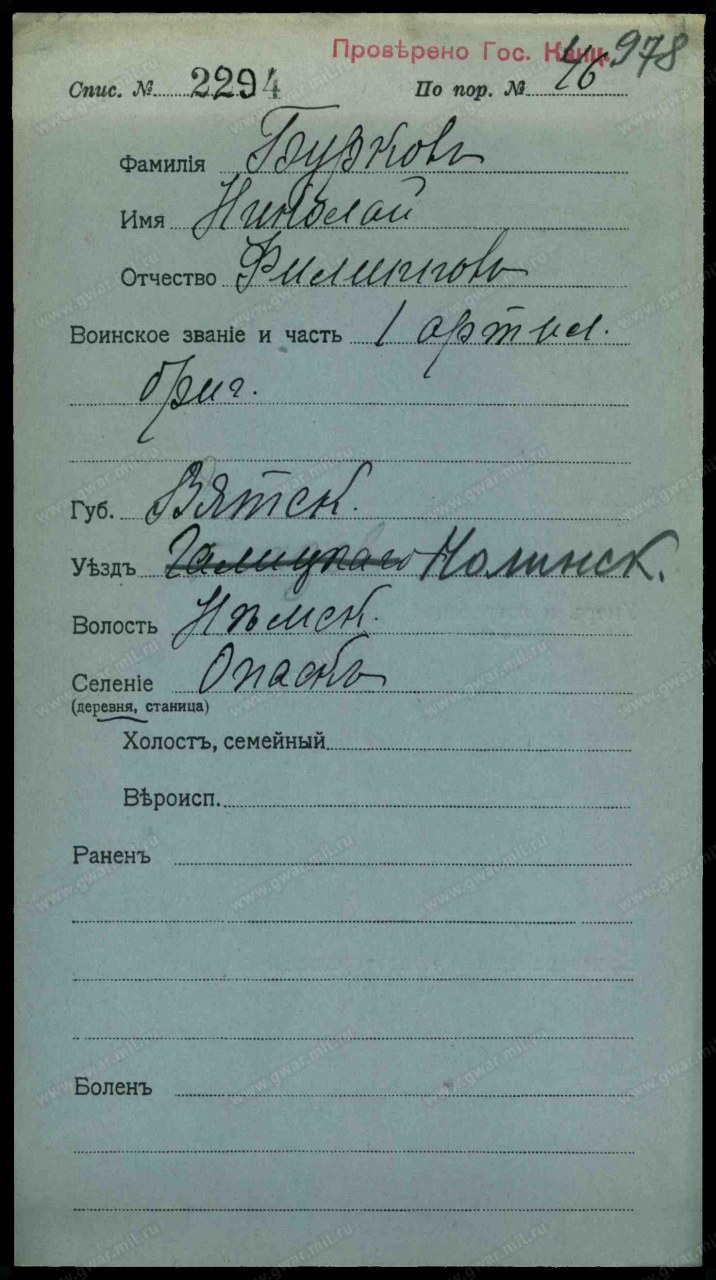 Провѣрено Гос. Канц. 978
Спис. № 2294 По пор. № 46
Фамилія Бурковъ
Имя Николай
Отчество Филипповъ
Воинское званіе и часть 1 артил.
бриг.
Губ. Вятск.
Уѣздъ Галицкаго Нолинск.
Волость Нѣмск.
Селеніе Опаскъ
(деревня, станица)
Холостъ, семейный
Вѣроисп.
Раненъ
Боленъ